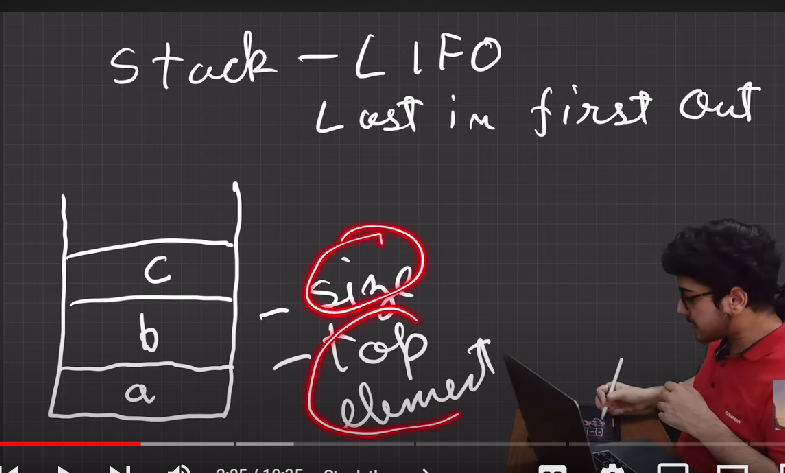 Stack - LIFO
Last in first Out
c
b
a
- size
- top
element